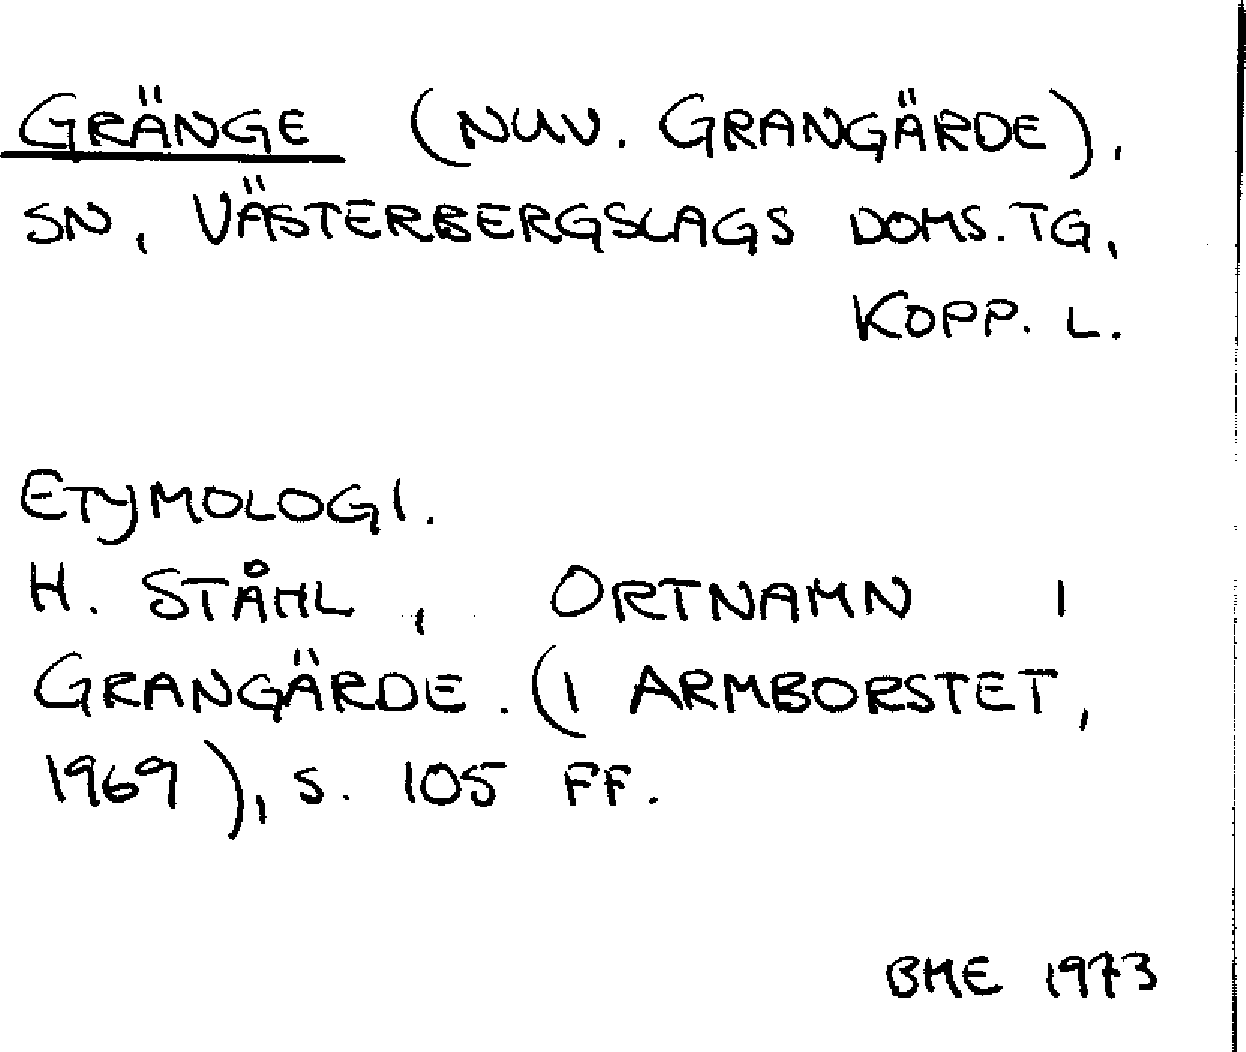 GRÄNGE (NUV. GRANGÄRDE),
SN, VÄSTERBERGSLAGS DOMS.TG,
KOPP. L.
ETYMOLOGI.
H. STÅHL, ORTNAMN I
GRANGÄRDE. (I ARMBORSTET,
1969), S. 105 FF.
BME 1973